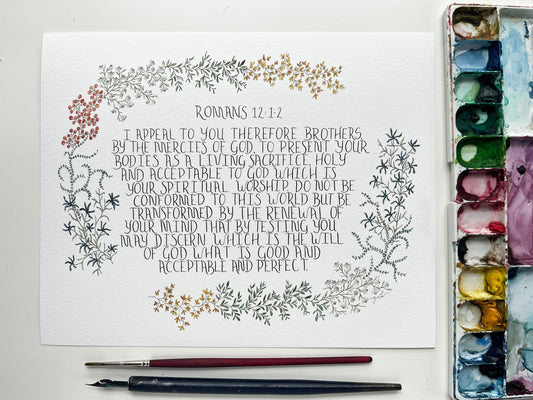 ROMANS 12:1-2
I APPEAL TO YOU THEREFORE BROTHERS,
BY THE MERCIES OF GOD, TO PRESENT YOUR
BODIES AS A LIVING SACRIFICE, HOLY
AND ACCEPTABLE TO GOD WHICH IS
YOUR SPIRITUAL WORSHIP. DO NOT BE
CONFORMED TO THIS WORLD BUT BE
TRANSFORMED BY THE RENEWAL OF
YOUR MIND THAT BY TESTING YOU
MAY DISCERN WHICH IS THE WILL
OF GOD WHAT IS GOOD AND
ACCEPTABLE AND PERFECT.